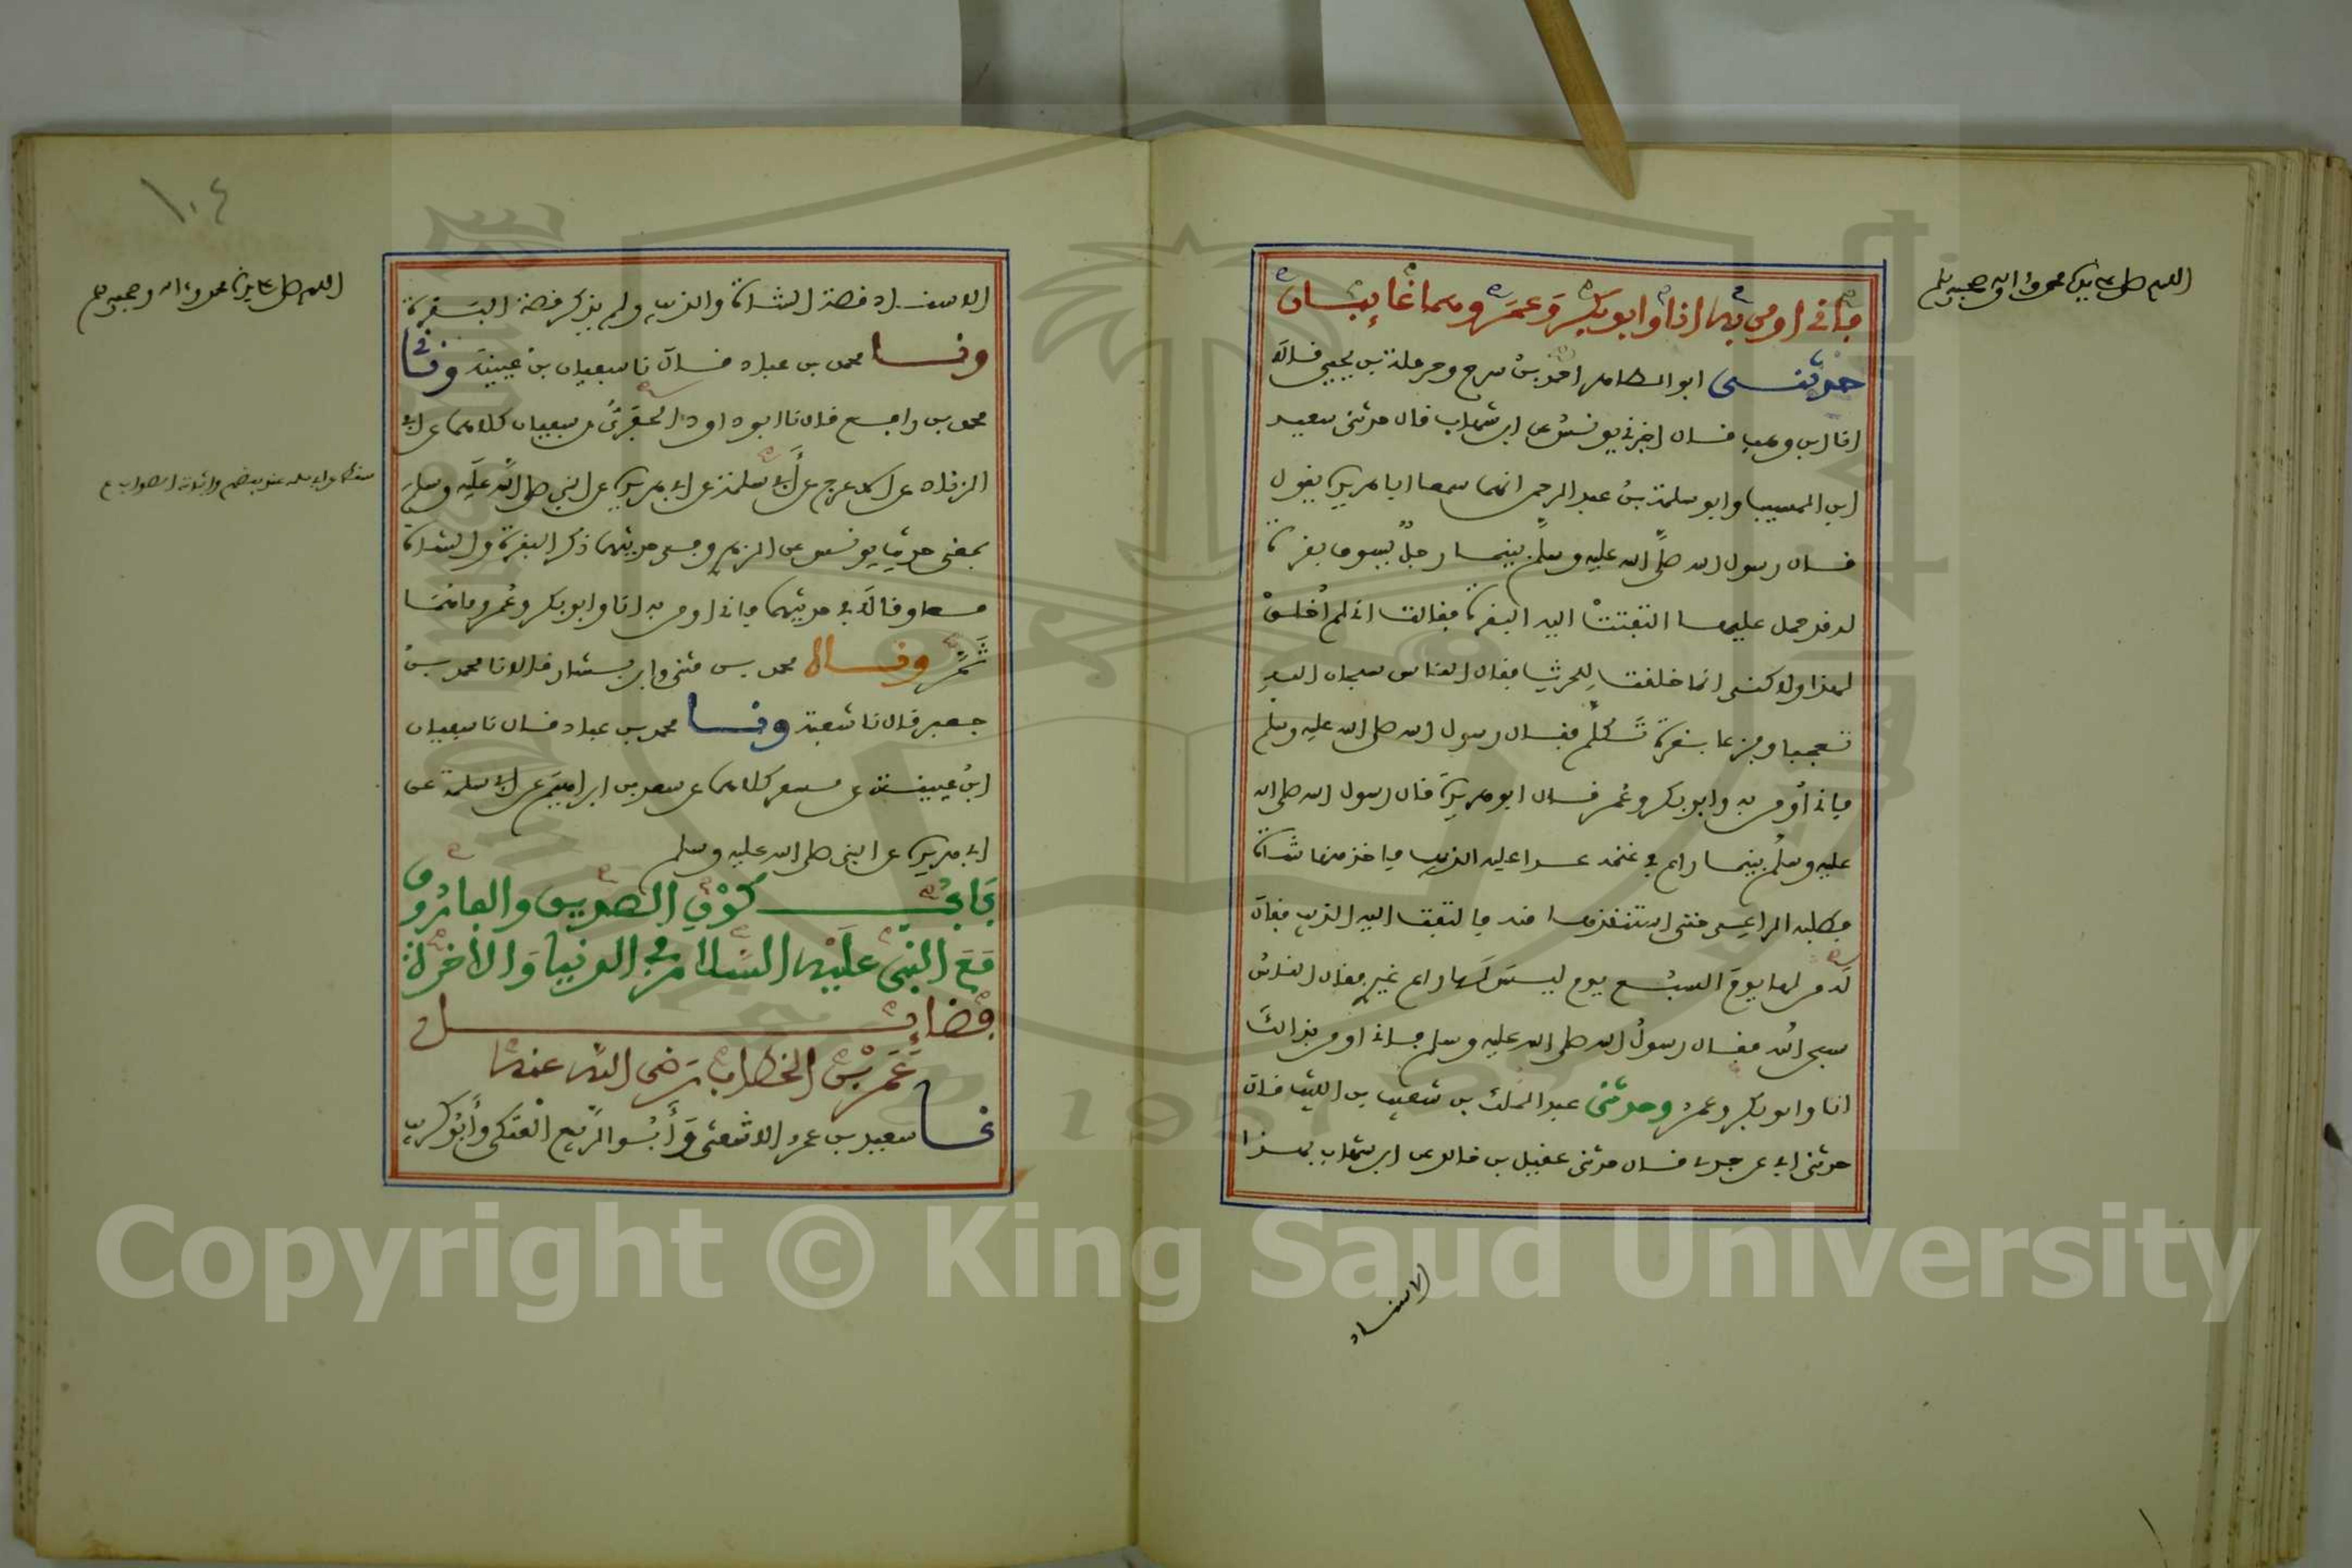 اللهم صل على سيدنا محمد وءاله وصحبه وسلم
فإني أومن به أنا وأبو بكر وعمر وهما غائبان
حدثنى أبو الطاهر أحمد بن سرح وحرملة بن يحيى قالا
انا ابن وهب قال اخبرني يونس عن ابن شهاب قال حدثنى سعيد
ابن المسيب وابو سلمة بن عبد الرحمن انهما سمعا ابا هريرة يقول
قال رسول الله صلى الله عليه وسلم بينما رجل يسوق بقرة
له قد حمل عليها التفتت اليه البقرة فقالت اني لم أخلق
لهذا ولاكنى انما خلقت للحرث فقال الناس سبحان الله
تعجبا وفزعا بقرة تكلم فقال رسول الله صلى الله عليه وسلم
فإني أومن به وابو بكر وعمر قال ابو هريرة قال رسول الله صلى الله
عليه وسلم بينما راع في غنمه عدا عليه الذيب فاخذ منها شاة
فطلبه الراعى حتى استنقذها منه فالتفت اليه الذيب فقال
له من لها يوم السبع يوم ليس لها راع غيرى فقال الناس
سبحن الله فقال رسول الله صلى الله عليه وسلم فإني اومن بذالك
انا وابو بكر وعمر وحدثنى عبد الملك بن شعيب بن الليث قال
حدثنى ابى عن جدى قال حدثنى عقيل بن خالد عن ابن شهاب بهذا
الاسناد
١٠٤
اللهم صل على سيدنا محمد وءاله وصحبه وسلم
الاسناد قصة الشاة والذيب ولم يذكر قصة البقرة
ونا محمد بن عباد قال نا سفيان بن عيينة وثنى
محمد بن رافع قال نا ابو داود الحفري عن سفيان كلاهما عن ابى
الزناد عن الاعرج عن أبى سلمة عن ابى هريرة عن النبي صلى الله عليه وسلم
بمعنى حديث يونس عن الزهري وفى حديثهما ذكر البقرة والشاة
معا وقالا في حديثهما فإني اومن به انا وابو بكر وعمر وما هما
ثم ونا محمد بن مثنى وابن بشار قالا نا محمد بن
جعفر قال نا شعبة ونا محمد بن عباد قال نا سفيان
ابن عيينة عن مسعر كلاهما عن سعد بن ابراهيم عن ابى سلمة عن
ابى هريرة عن النبى صلى الله عليه وسلم
باب كون الصديق والفاروق
مع النبى عليه السلام في الدنيا والأخرة
فضائل
عمر بن الخطاب رضى الله عنه
نا سعيد بن عمرو الاشعثى وأبو الربيع العتكى وأبو كريب